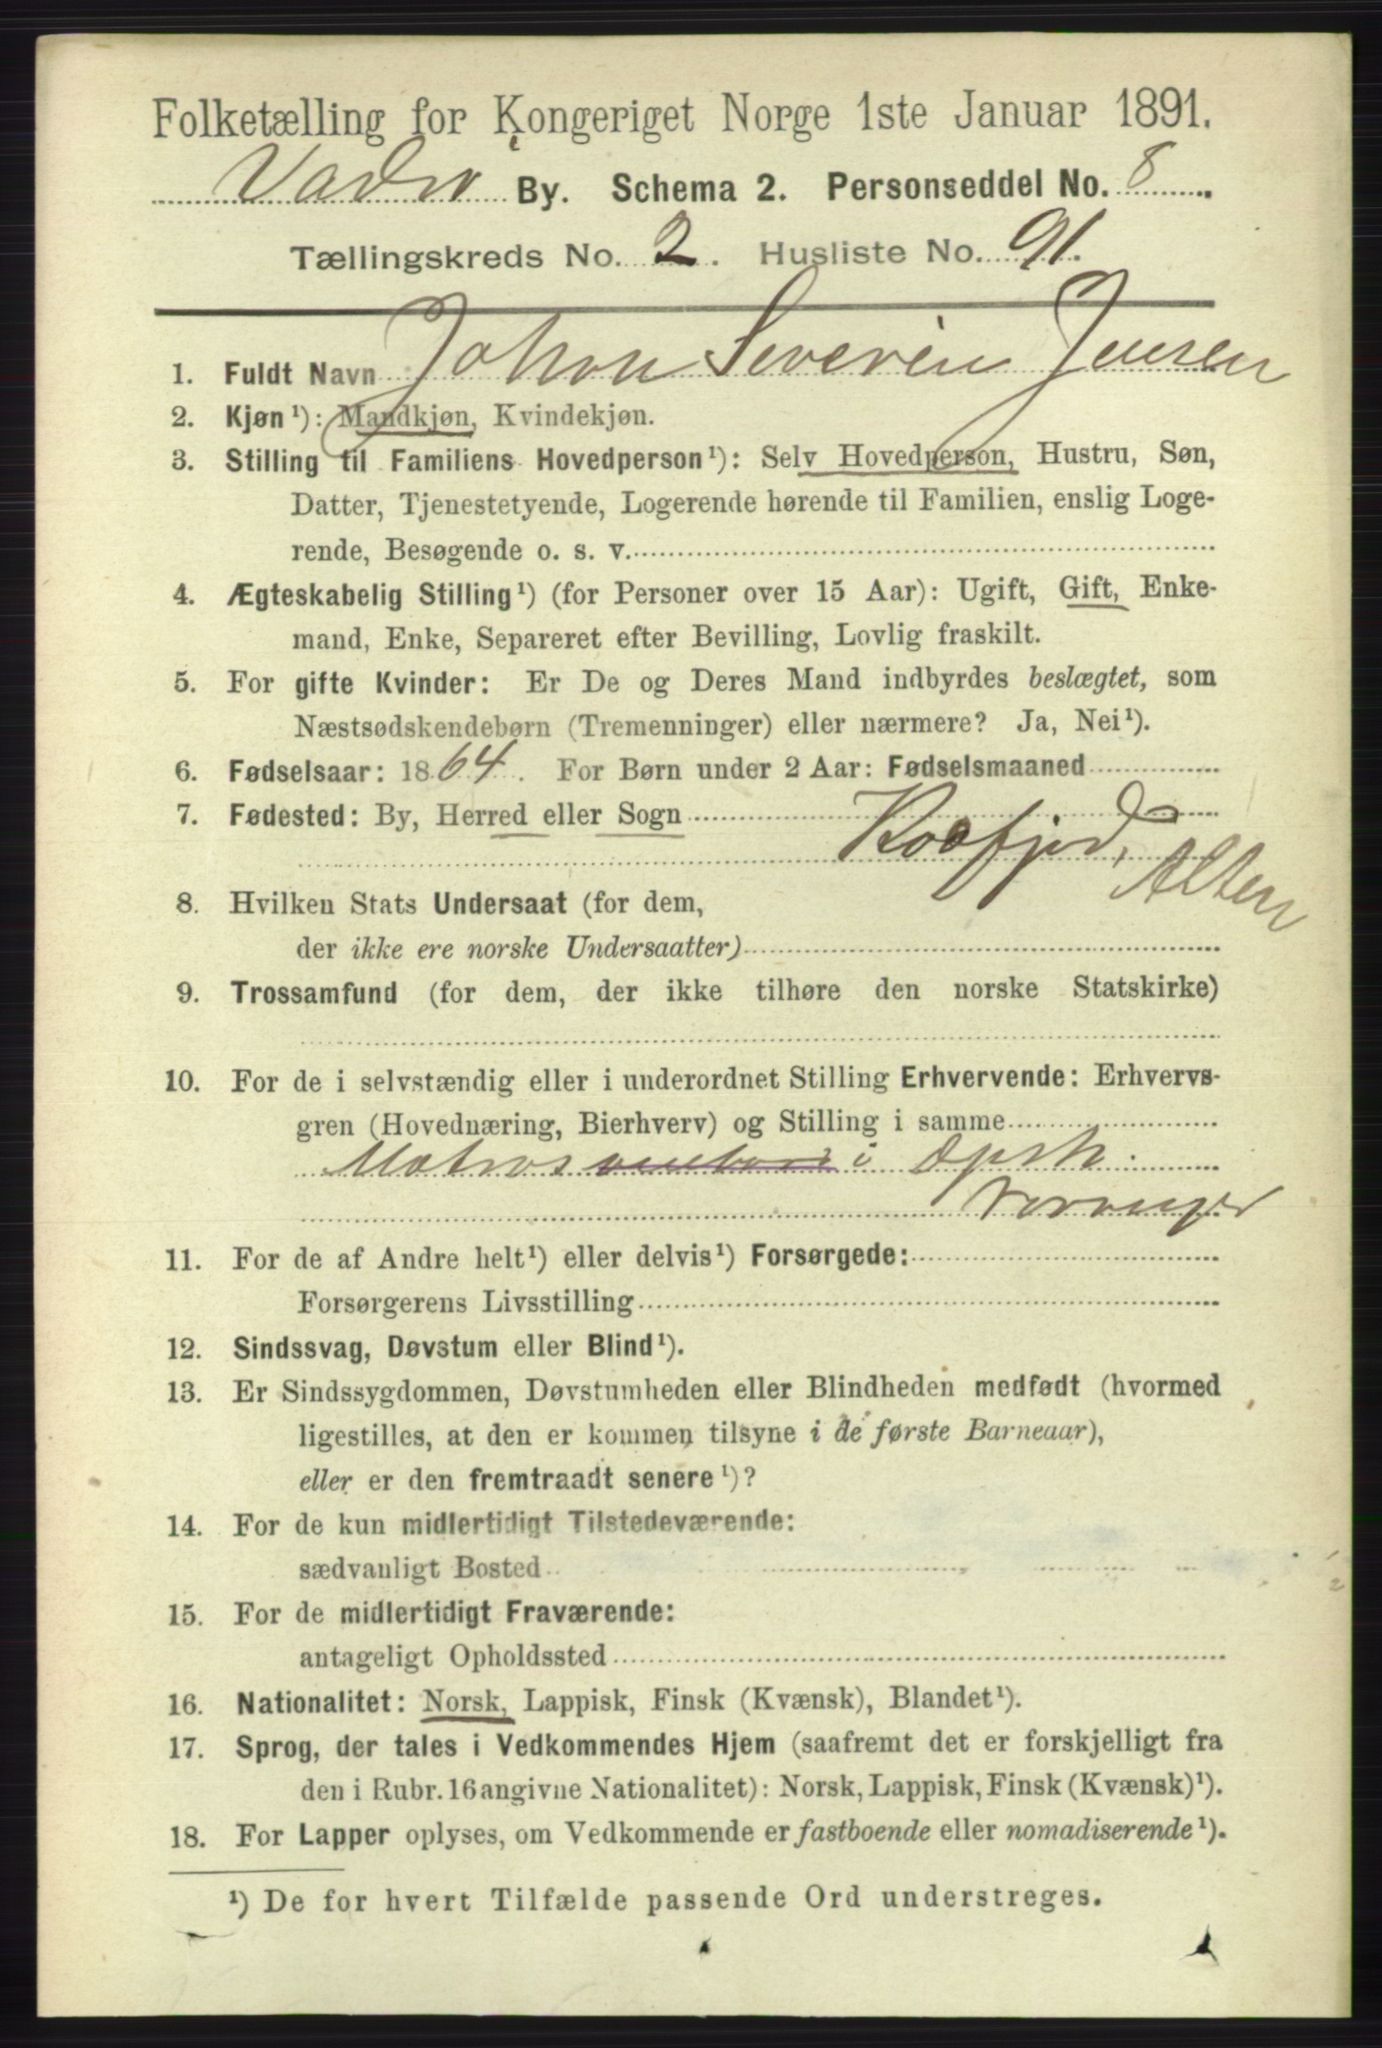 Folketælling for Kongeriget Norge 1ste Januar 1891.
Vadsø By. Schema 2. Personseddel No. 8
Tællingskreds No. 2. Husliste No. 91.
1. Fuldt Navn Johan Severin Jensen
2. Kjøn¹): Mandkjøn, Kvindekjøn.
3. Stilling til Familiens Hovedperson¹): Selv Hovedperson, Hustru, Søn,
Datter, Tjenestetyende, Logerende hørende til Familien, enslig Loge-
rende, Besøgende o. s. v.
4. Ægteskabelig Stilling¹) (for Personer over 15 Aar): Ugift, Gift, Enke-
mand, Enke, Separeret efter Bevilling, Lovlig fraskilt.
5. For gifte Kvinder: Er De og Deres Mand indbyrdes beslægtet, som
Næstsødskendebørn (Tremenninger) eller nærmere? Ja, Nei¹).
6. Fødselsaar: 1864. For Børn under 2 Aar: Fødselsmaaned
7. Fødested: By, Herred eller Sogn
Kaafjord, Alten
8. Hvilken Stats Undersaat (for dem,
der ikke ere norske Undersaatter)
9. Trossamfund (for dem, der ikke tilhøre den norske Statskirke)
10. For de i selvstændig eller i underordnet Stilling Erhvervende: Erhvervs-
gren (Hovednæring, Bierhverv) og Stilling i samme
Matros i Dpsk.
Varanger
11. For de af Andre helt¹) eller delvis¹) Forsørgede:
Forsørgerens Livsstilling
12. Sindssvag, Døvstum eller Blind¹).
13. Er Sindssygdommen, Døvstumheden eller Blindheden medfødt (hvormed
ligestilles, at den er kommen tilsyne i de første Barneaar),
eller er den fremtraadt senere¹)?
14. For de kun midlertidigt Tilstedeværende:
sædvanligt Bosted
15. For de midlertidigt Fraværende:
antageligt Opholdssted
16. Nationalitet: Norsk, Lappisk, Finsk (Kvænsk), Blandet¹).
17. Sprog, der tales i Vedkommendes Hjem (saafremt det er forskjelligt fra
den i Rubr. 16 angivne Nationalitet): Norsk, Lappisk, Finsk (Kvænsk)¹).
18. For Lapper oplyses, om Vedkommende er fastboende eller nomadiserende¹).
¹) De for hvert Tilfælde passende Ord understreges.